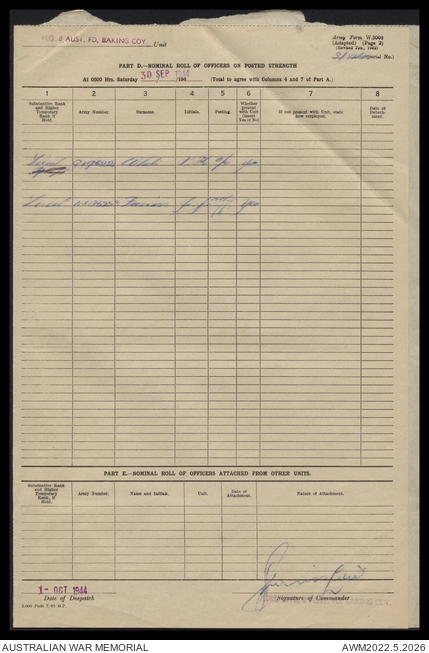 H.Q. 8 AUST. FD. BAKING COY. Unit
Army Form W.3008
(Adapted) (Page 2)
(Revised Jan., 1943)
(Serial No.)
PART D.—NOMINAL ROLL OF OFFICERS ON POSTED STRENGTH
At 0600 Hrs. Saturday 30 SEP 1944 /194 (Total to agree with Columns 4 and 7 of Part A.)
1 2 3 4 5 6 7 8
Substantive Rank and Higher Temporary Rank, if Held. Army Number. Surname. Initials. Posting. Whether present with Unit (Insert Yes or No) If not present with Unit, state how employed. Date of Detachment.
Lieut yes
Lieut J. yes
PART E.—NOMINAL ROLL OF OFFICERS ATTACHED FROM OTHER UNITS.
Substantive Rank and Higher Temporary Rank, if Held. Army Number. Name and Initials. Unit. Date of Attachment. Nature of Attachment.
1- OCT 1944
Date of Despatch
Signature of Commander
AUSTRALIAN WAR MEMORIAL
AWM2022.5.2026